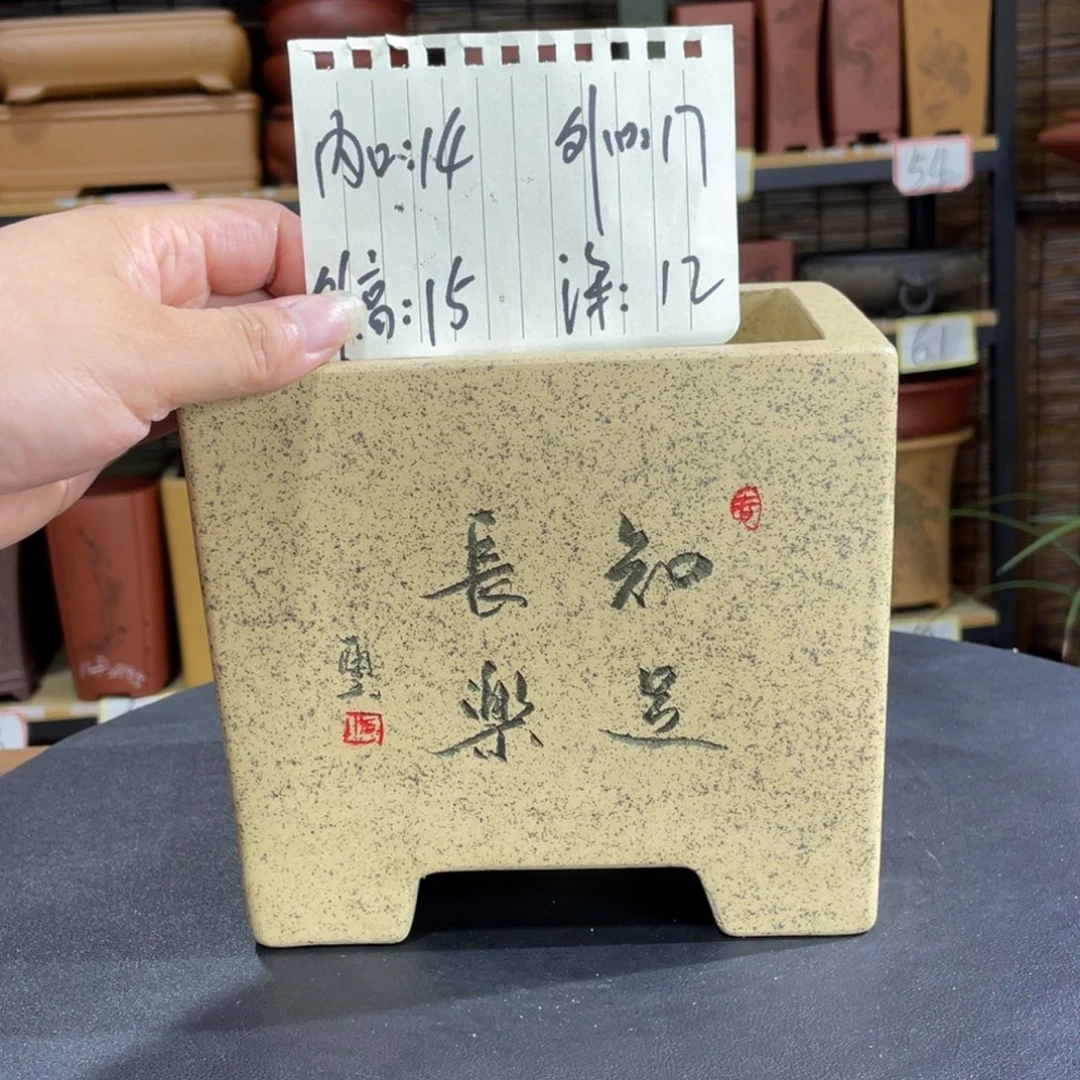 内口:14 外口:17
外高:15 深:12
知足
長樂
54
61